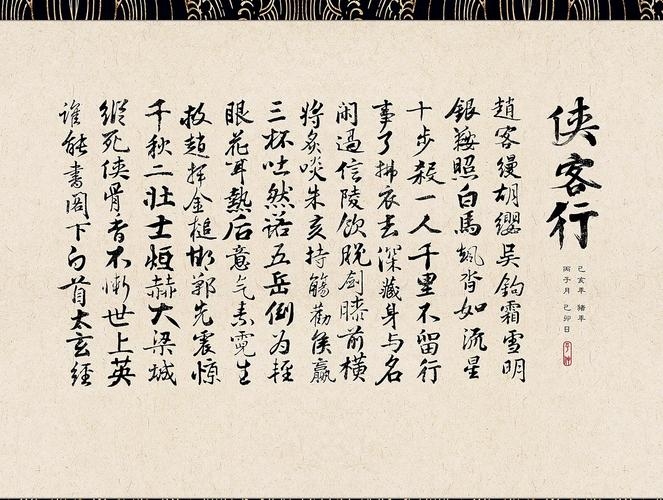 侠客行
己亥年 猪年
丙子月 己卯日
趙客缦胡缨吴鉤霜雪明
銀鞍照白馬飒沓如流星
十步殺一人千里不留行
事了拂衣去深藏身与名
闲過信陵飲脱劍膝前横
将炙啖朱亥持觞勸侯嬴
三杯吐然诺五岳倒为轻
眼花耳熱后意气素霓生
救趙挥金槌邯鄲先震惊
千秋二壮士烜赫大梁城
縱死侠骨香不惭世上英
谁能書阁下白首太玄經